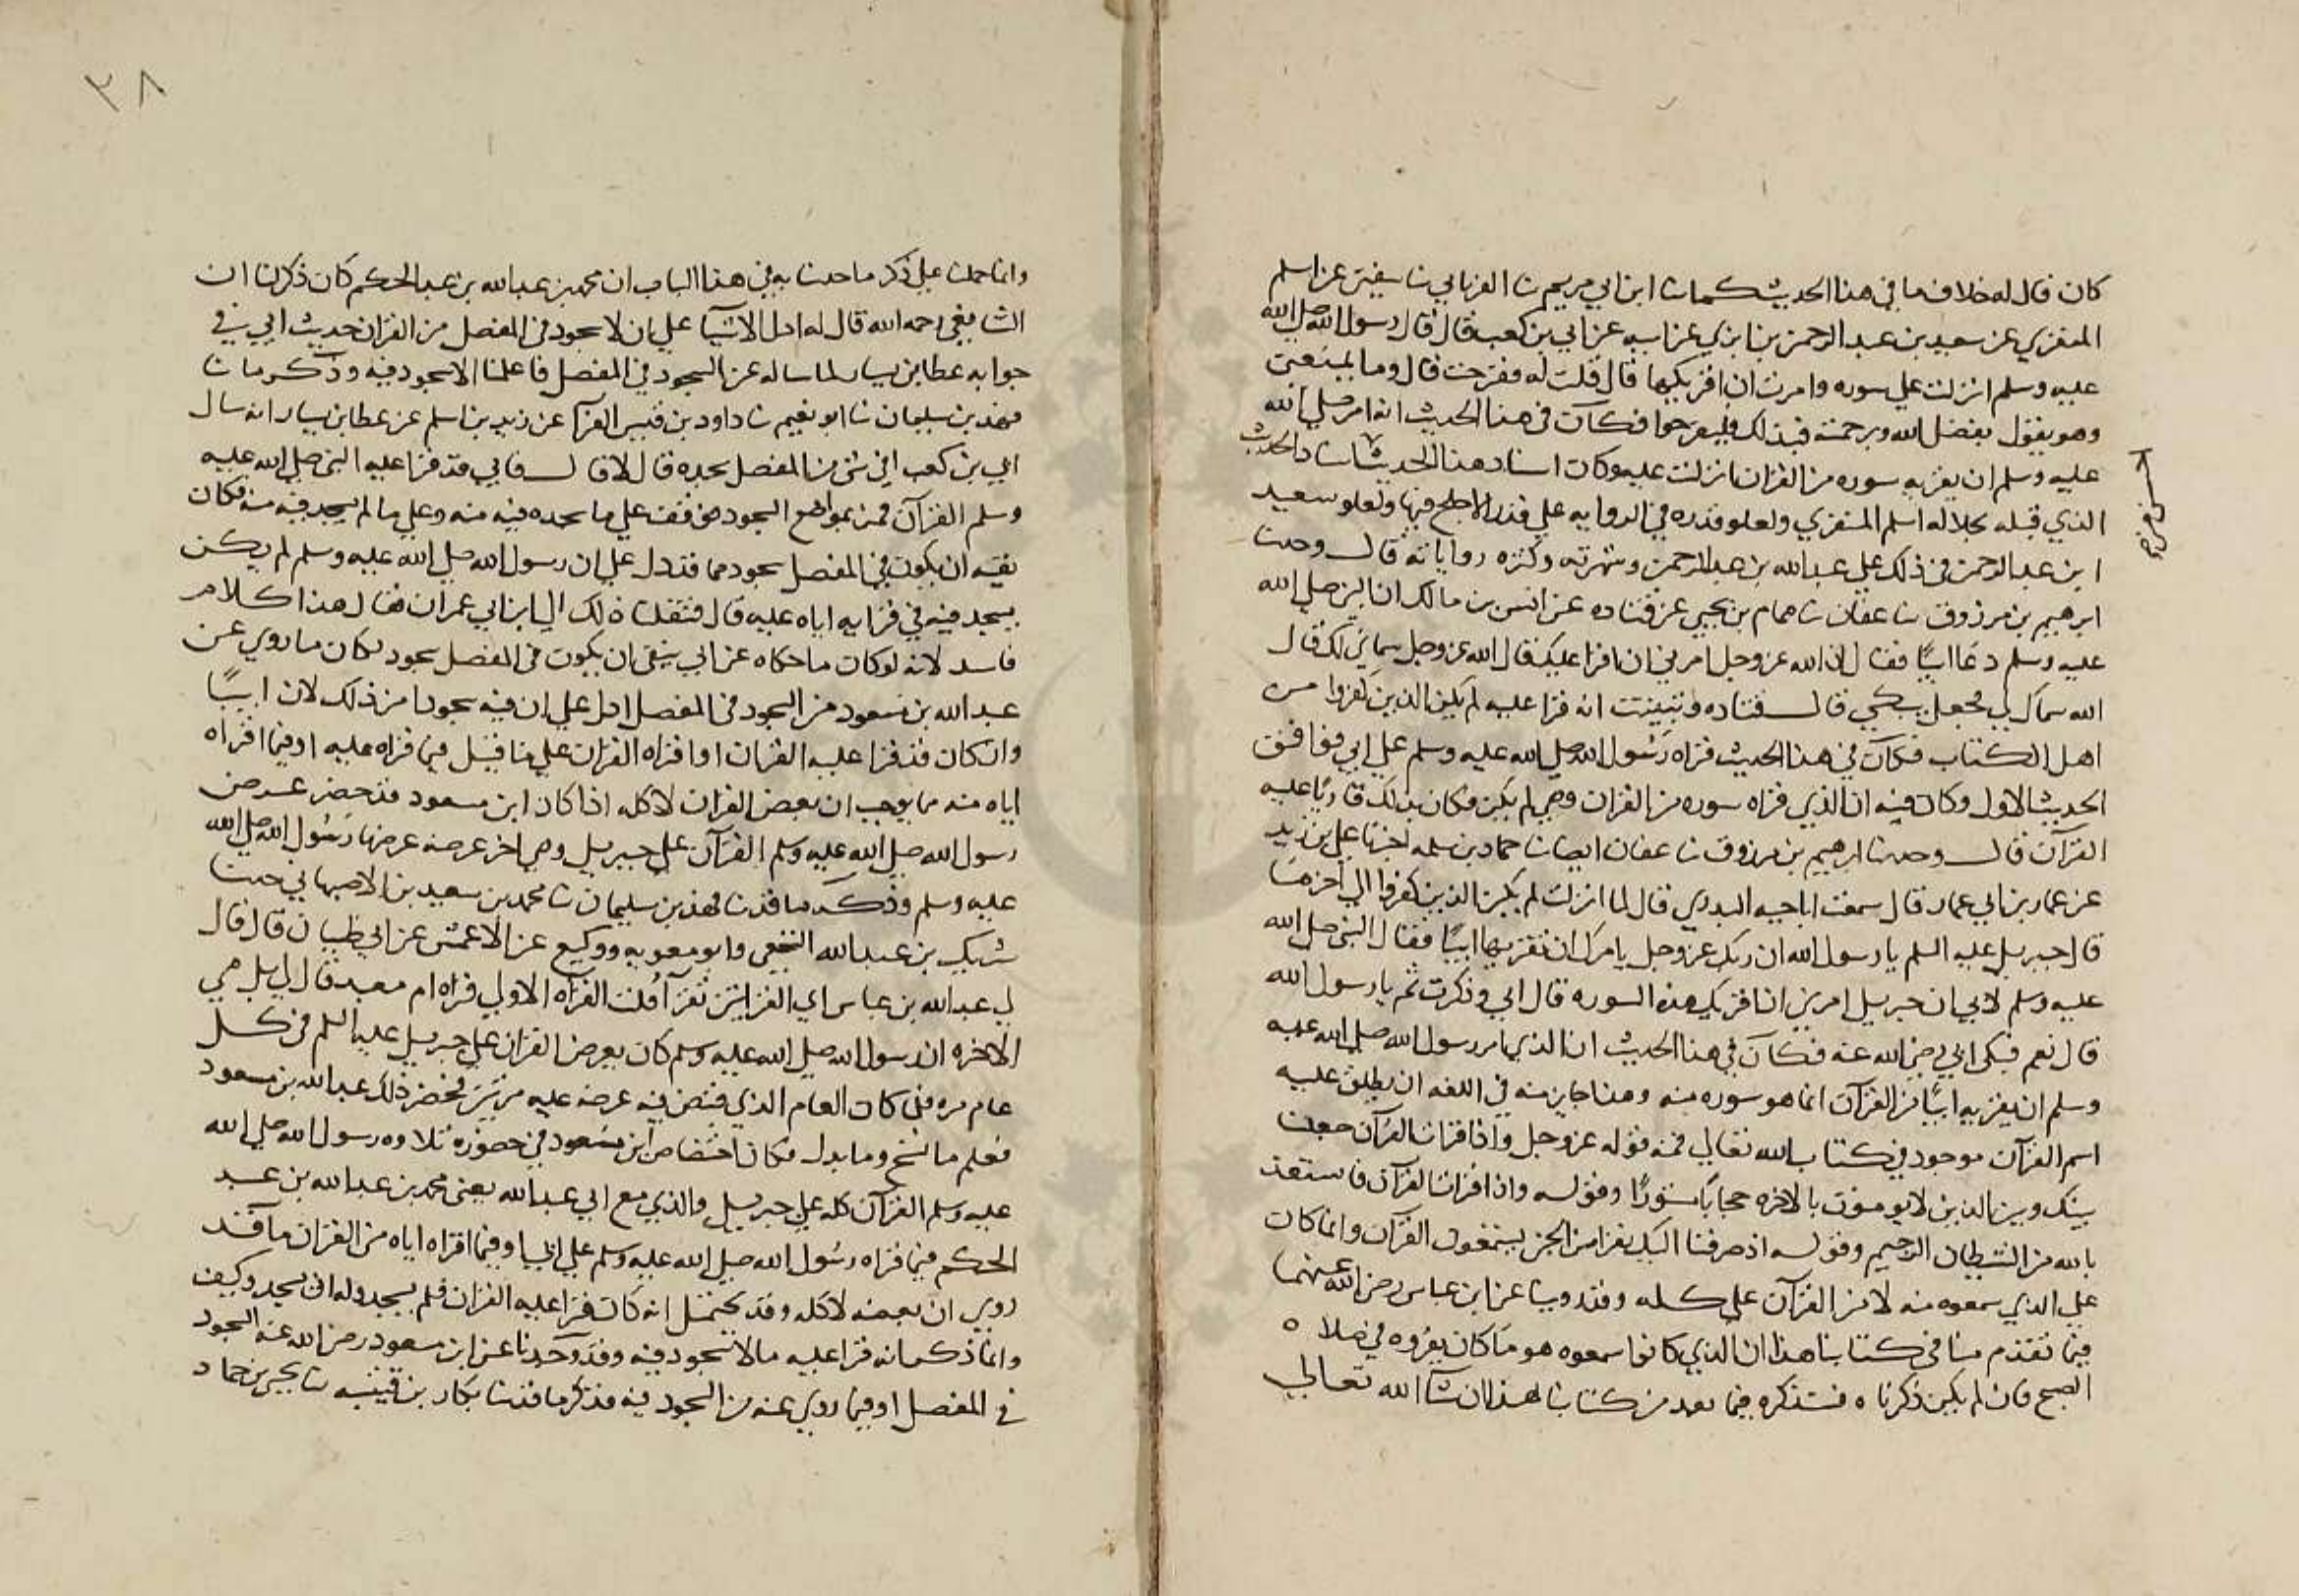 كان قال له خلاف ما في هذا الحديث كما ثنا ابن ابي مريم ثنا الفريابي ثنا سفين عن اسلم
المنقري عن سعيد بن عبد الرحمن بن ابزي عن ابيه عن ابي بن كعب قال قال رسول الله صلي الله
عليه وسلم انزلت علي سوره وامرت ان اقريكها قال قلت له ففرحت قال وما يمنعني
وهو يقول بفضل الله وبرحمته فبذلك فليفرحوا فكان في هذا الحديث انه امر صلي الله
عليه وسلم ان يقريه سوره من القران انزلت عليه وكان اسناد هذا الحديث الحديث
الذي قبله بجلاله اسلم المنقري ولعلو قدره في الروايه علي قدر الاجلح فيها ولعلو سعيد
ابن عبد الرحمن في ذلك علي عبد الله بن عبد الرحمن وشهرته وكثره رواياته قال وحدثنا
ابرهيم بن مرزوق ثنا عفان ثنا همام بن يحيي عن قتاده عن انس بن مالك ان النبي صلي الله
عليه وسلم دعا ابيًا فقال ان الله عز وجل امرني ان اقرا عليك قال الله عز وجل سماني لك قال
الله سماك لي فجعل يبكي قال قتاده ونبيت انه قرا عليه لم يكن الذين كفروا من
اهل الكتاب فكان في هذا الحديث قراه رسول الله صلي الله عليه وسلم علي ابي فوافق
الحديث الاول وكان فيه ان الذي قراه سوره من القران وهي لم يكن فكان بذلك قاريًا عليه
القرآن قال وحدثنا ابرهيم بن مرزوق ثنا عفان ايضا ثنا حماد بن سلمه اخبرنا علي بن زيد
عن عمار بن ابي عمار قال سمعت ابا حيه البدري قال لما انزلت لم يكن الذين كفروا الي آخرها
قال جبريل عليه السلم يا رسول الله ان ربك عز وجل يامرك ان تقريها ابيًا فقال النبي صلي الله
عليه وسلم لابي ان جبريل امرني ان اقريك هذه السوره قال ابي وذكرت ثم يا رسول الله
قال نعم فبكي ابي رضي الله عنه فكان في هذا الحديث ان الذي امر رسول الله صلي الله عليه
وسلم ان يقريه ابيًا من القرآن انما هو سوره منه وهذا جايز منه في اللغه ان يطلق عليه
اسم القرآن موجود في كتاب الله تعالي فمنه قوله عز وجل واذا قرات القرآن جعلنا
بينك وبين الذين لا يومنون بالاخره حجابًا مستورًا وقوله واذا قرات القرآن فاستعذ
بالله من الشيطان الرجيم وقوله اذ صرفنا اليك نفرا من الجن يستمعون القرآن وانما كان
علي الذي سمعوه منه لا من القرآن علي كله وقد روينا عن ابن عباس رضي الله عنهما
فيما تقدم منا في كتابنا هذا ان الذي كانوا سمعوه هو ما كان يقروه في صلاه
الصبح فان لم يكن ذكرناه فسنذكره فيما بعد من كتابنا هذا ان شآ الله تعالي
٣٨
وانما حملنا علي ذكر ما حدثنا به في هذا الباب ان محمد بن عبد الله بن عبد الحكم كان ذكر لنا ان
الشافعي رحمه الله قال له ادل الاشيآ علي ان لا سجود في المفصل من القران حديث ابي في
جوابه عطا بن يسار لما ساله عن السجود في المفصل فاعلمنا الا سجود فيه وذكر ما ثنا
فهد بن سليمان ثنا ابو نعيم ثنا داود بن قيس الفرآ عن زيد بن اسلم عن عطا بن يسار انه سال
ابي بن كعب افي شي من المفصل سجده قال لا قال فابي قد قرا عليه النبي صلي الله عليه
وسلم القرآن فمن بمواضع السجود فوقف علي ما سجده فيه منه وعلي ما لم يسجد فيه منه فكان
نفيه ان يكون في المفصل سجود مما قد دل علي ان رسول الله صلي الله عليه وسلم لم يكن
يسجد فيه في قرايه اياه عليه قال فنقلت ذلك الي ابن ابي عمران فقال هذا كلام
فاسد لانه لو كان ما حكاه عن ابي ينفي ان يكون في المفصل سجود لكان ما روي عن
عبد الله بن مسعود من السجود في المفصل ادل علي ان فيه سجودا من ذلك لان ابيًا
وان كان قد قرا عليه القران او اقراه القران علي ما قيل فيما قراه عليه او فيما اقراه
اياه منه ما يوجب ان بعض القران لا كله اذا كان ابن مسعود قد حضر عرض
رسول الله صلي الله عليه وسلم القرآن علي جبريل وهي اخر عرضه عرضها رسول الله صلي الله
عليه وسلم وذكر ما قد ثنا فهد بن سليمان ثنا محمد بن سعيد بن الاصبهاني حدثنا
شريك بن عبد الله النخعي وابو معويه ووكيع عن الاعمش عن ابي ظبيان قال قال
لي عبد الله بن عباس اي القراتين تقرآ قلت القرآه الاولي قراه ام معبد قال لي بل هي
الاخره ان رسول الله صلي الله عليه وسلم كان يعرض القران علي جبريل عليه السلم في كل
عام مره فلما كان العام الذي قبض فيه عرضه عليه مرتين فحضر ذلك عبد الله بن مسعود
فعلم ما نسخ وما بدل فكان اختصاص ابن مسعود في حضوره تلاوه رسول الله صلي الله
عليه وسلم القرآن كله علي جبريل والذي مع ابي عبد الله يعني محمد بن عبد الله بن عبد
الحكم فيما قراه رسول الله صلي الله عليه وسلم علي ابي او فيما اقراه اياه من القران ما قد
روي ان بعضه لا كله وقد يحتمل انه كان قرا عليه القران فلم يسجد وله ان يسجد وكيف
وانما ذكر انه قرا عليه ما لا سجود فيه وقد وجدنا عن ابن مسعود رضي الله عنه السجود
في المفصل او فيما روي عنه من السجود فيه فذكر ما قد ثنا بكار بن قتيبه ثنا يحيي بن حماد